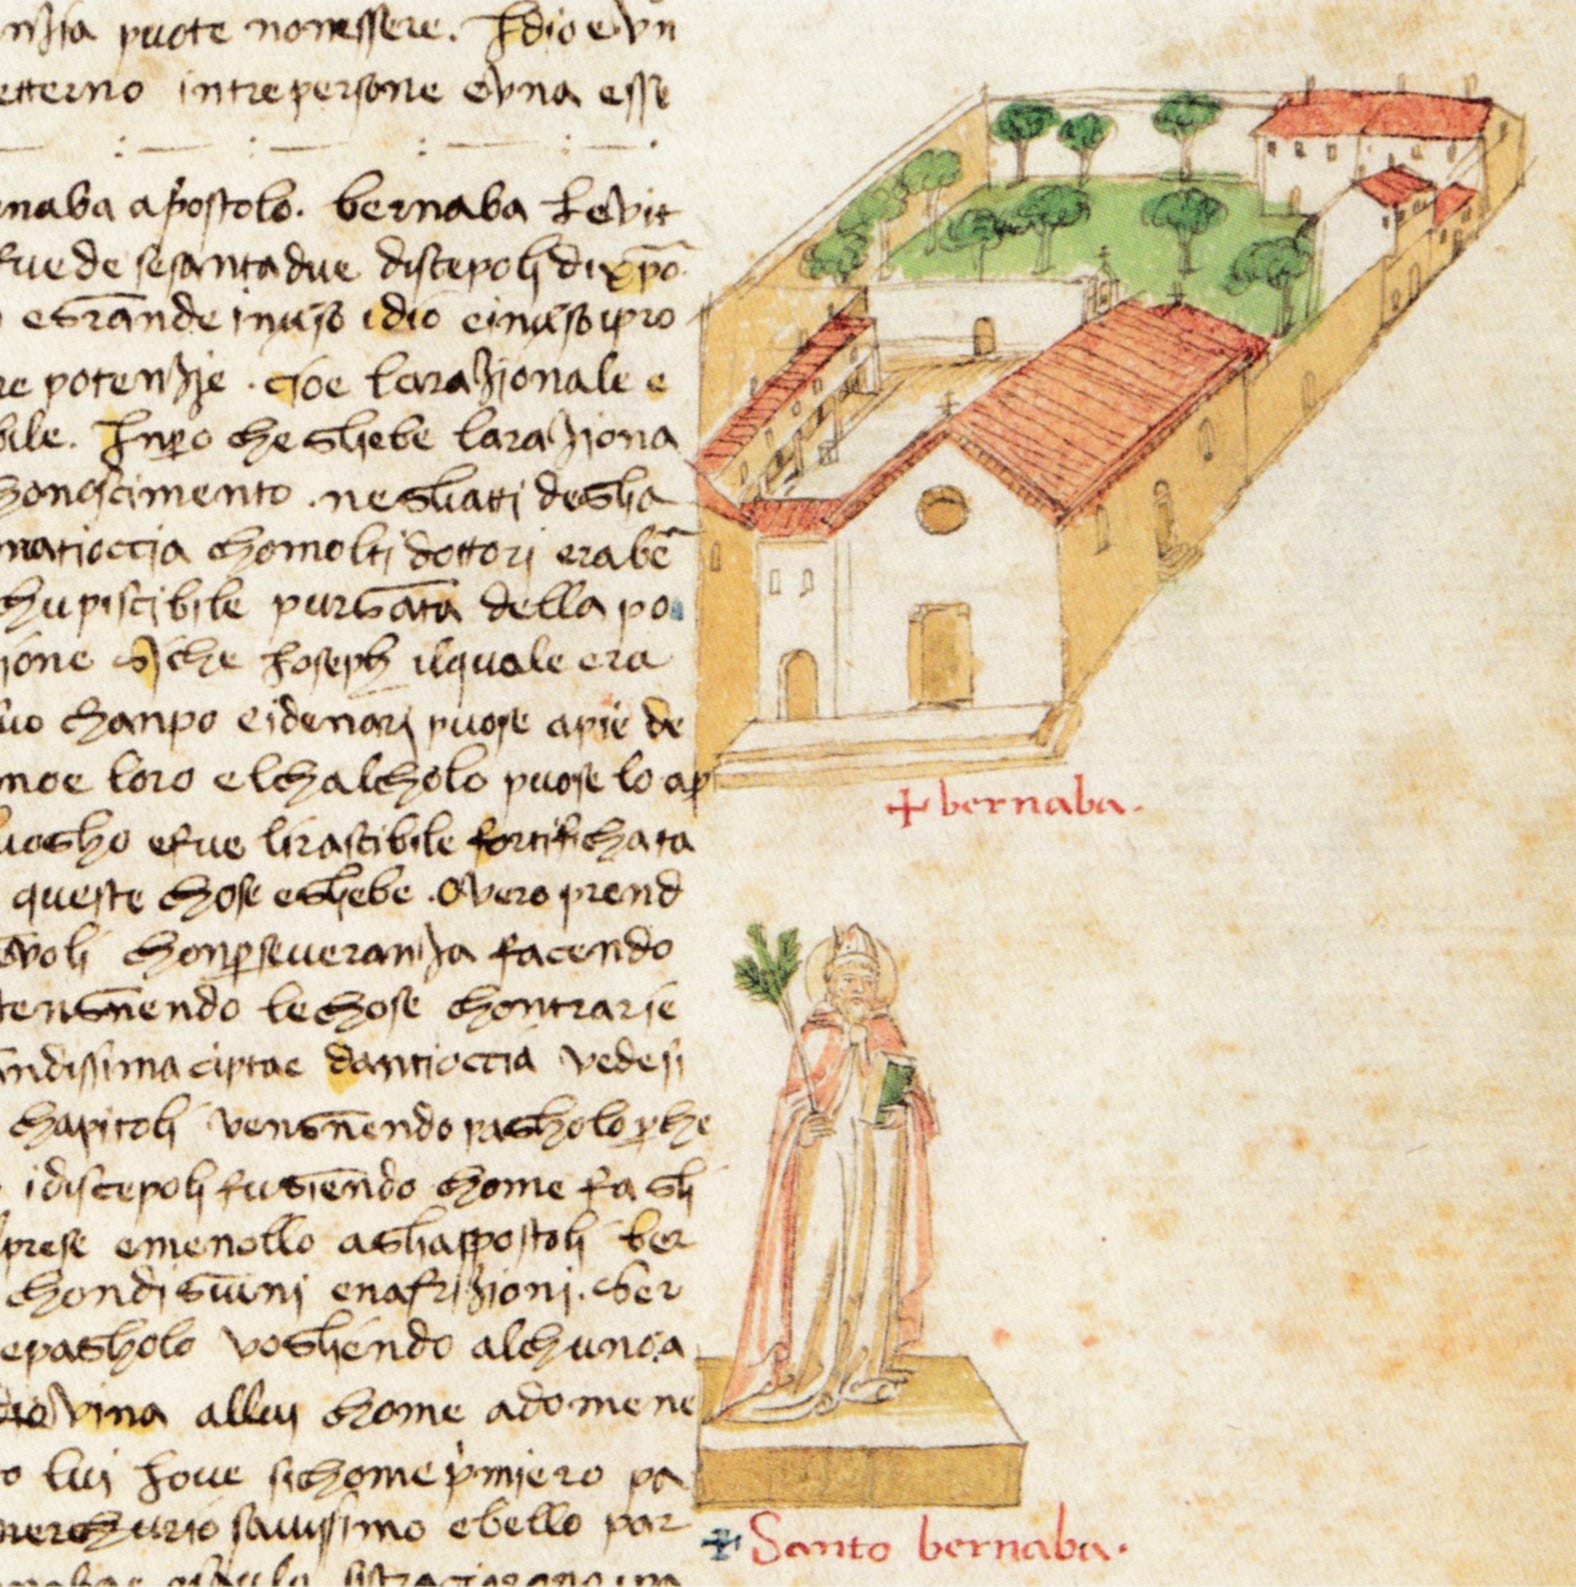 puote nonessere. Idio e vn
etterno intrepersone evna esse
naba apostolo. bernaba levit
fue de sesantadue discepoli di xpo
e grande inuiso idio einuiso ipro
re potenzie. cioe larazionale e
bile. Inpero che gliebe larazziona
honoscimento. negliatti deglia
natioccia chomolti dottori erabe
chupiscibile purgata della po
ione siche Joseph ilquale era
suo chanpo eidenari puose apie de
moe loro elchalcholo puose lo ap
luogho efue lirascibile fortifichata
queste chose egliebe. Overo prend
evoli chonperseveranza facendo
tengnendo lechose chontrarie
andissima ciptae dantioccia vedesi
chapitoli vengnendo pagholo perche
idiscepoli fugiendo chome fa gli
prese emenollo agliappostoli ber
chondigiuni enafrizioni. ber
epagholo vogliendo alchuna
vina allui chome adomene
o lui Jove sichome primiero pa
merchurio savissimo ebello par
+ bernaba.
+ Santo bernaba.